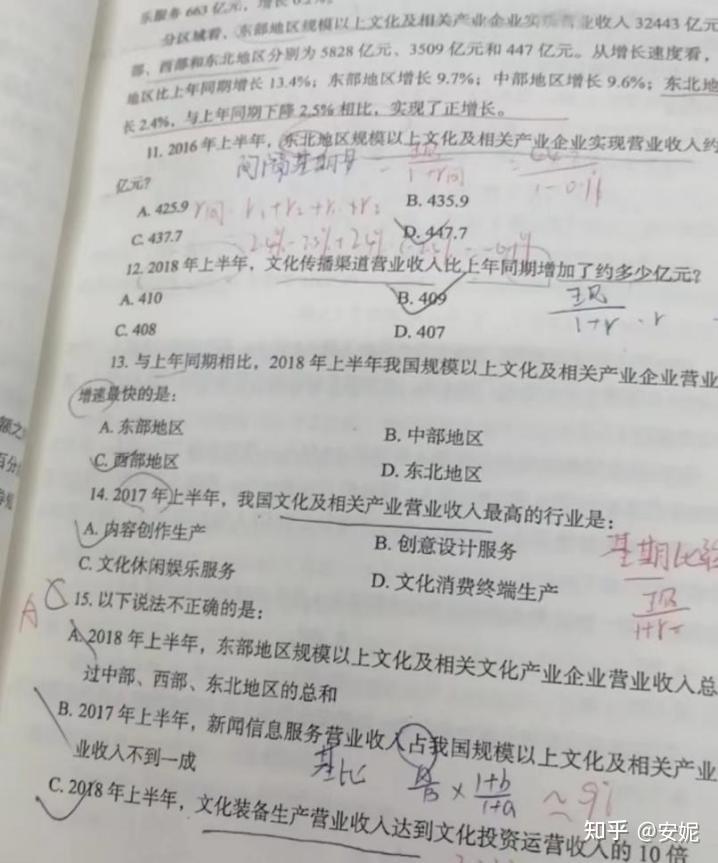 乐服务 663 亿元，增长
分区域看，东部地区规模以上文化及相关产业企业实现营业收入 32443 亿元
部、西部和东北地区分别为 5828 亿元、3509 亿元和 447 亿元。从增长速度看，
地区比上年同期增长 13.4%；东部地区增长 9.7%；中部地区增长 9.6%；东北地
长 2.4%，与上年同期下降 2.5%相比，实现了正增长。
11. 2016 年上半年，东北地区规模以上文化及相关产业企业实现营业收入约
间隔基期量 = 现/1+r间 = 1-0.1%
亿元?
A. 425.9
B. 435.9
r间 = r₁+r₂+r₁×r₂
C. 437.7
D. 447.7
12. 2018 年上半年，文化传播渠道营业收入比上年同期增加了约多少亿元?
A. 410
B. 409
现/1+r · r
C. 408
D. 407
13. 与上年同期相比，2018 年上半年我国规模以上文化及相关产业企业营业
增速最快的是：
A. 东部地区
B. 中部地区
C. 西部地区
D. 东北地区
14. 2017 年上半年，我国文化及相关产业营业收入最高的行业是：
A. 内容创作生产
B. 创意设计服务
基期比较
C. 文化休闲娱乐服务
D. 文化消费终端生产
现/1+r
A C 15. 以下说法不正确的是：
A. 2018 年上半年，东部地区规模以上文化及相关文化产业企业营业收入总
过中部、西部、东北地区的总和
B. 2017 年上半年，新闻信息服务营业收入占我国规模以上文化及相关产业
业收入不到一成
基比 A/B × 1+b/1+a ≈ 9%
C. 2018 年上半年，文化装备生产营业收入达到文化投资运营收入的 10 倍
知乎 @安妮